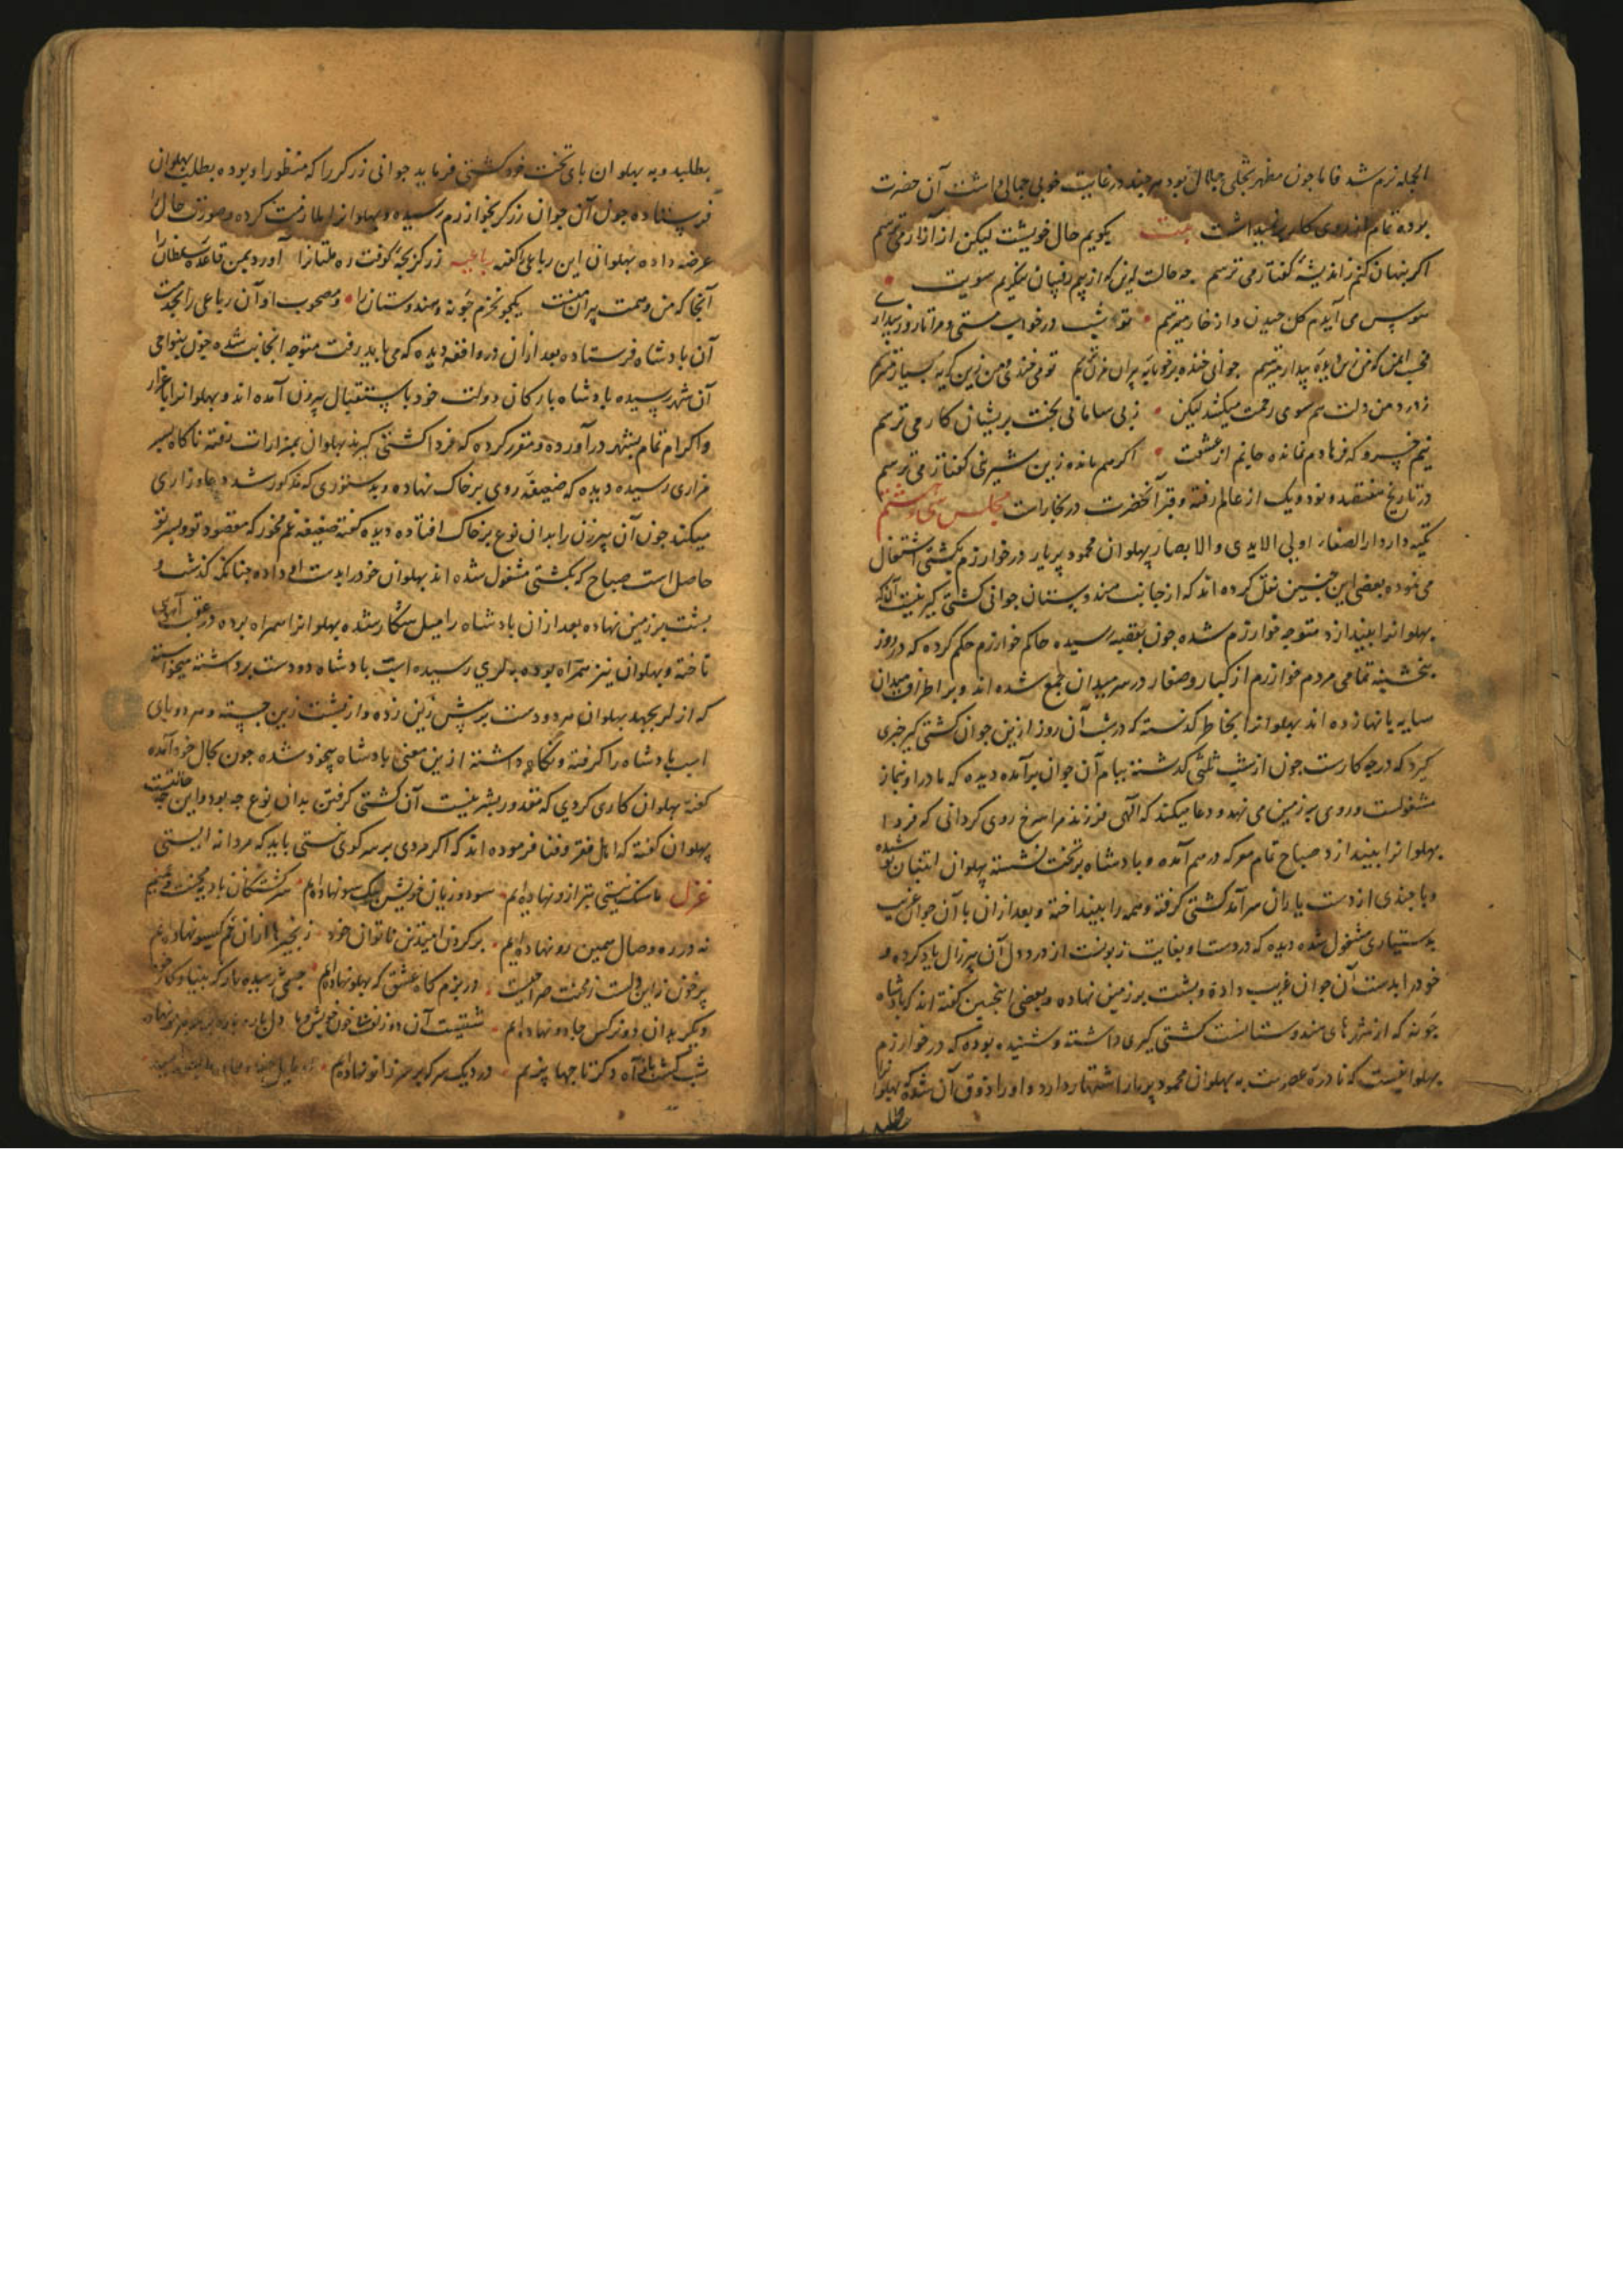 الجمله نرم شد فاما چون مظهر تجلی جلال بود هر چند در غایت خوبی جمالی داشت آن حضرت
بوده تمام از روی کار بر نمیداشت بیت بگویم حال خویشت لیکن از آزار می ترسم
اکر پنهان کنم ز اندیشهٔ کفتار می ترسم چه حالت این که از بیم رقیبان ننکرم سویت
هوس می آیدم کل چیدن و از خار میترسم تو شب در خواب مستی و مرا تا روز بیداری
زبی سامانی بخت پریشان کار می ترسم
نیم خسرو که فرهادم نمانده جانم از عشقت اکر هم مانده زین شیرینی کفتار می ترسم
در تاریخ هفتصد و نود و یک از عالم رفته و قبر آنحضرت در بخارات مجلس سی و ششم
تکیه دار دار الصفاء اولی الایدی والابصار پهلوان محمود پریار در خوارزم بکشتی اشتغال
می نموده بعضی این چنین نقل کرده اند که از جانب هندوستان جوانی کشتی کیر بنیت آنکه
پهلوانرا بیندازد متوجه خوارزم شده چون بقصبه رسیده حاکم خوارزم حکم کرده که در روز
پنجشنبه تمامی مردم خوارزم از کبار و صغار در سر میدان جمع شده اند و بر اطراف میدان
سایه بانها زده اند پهلوانرا بخاطر کذشته که در شب آن روز ازین جوان کشتی کیر خبری
کیرد که در چه کارست چون از شب ثلثی کذشته ببام آن جوان برآمده دیده که مادر او بنماز
مشغولست و روی بر زمین می نهد و دعا میکند که الهی فرزند مرا سرخ روی کردانی که فردا
پهلوانرا بیندازد صباح تمام معرکه در هم آمده و بادشاه بر تخت نشسته پهلوان
و با چندی از دست یاران سرآمد کشتی کرفته و همه را بینداخته و بعد ازان با آن جوان غریب
بدستیاری مشغول شده دیده که در دست او بغایت زبونست از درد دل آن پیرزال یاد کرده و
خود را بدست آن جوان غریب داده و پشت بر زمین نهاده و بعضی اینچنین کفته اند که بادشاه
جونه که از شهرهای هندوستانست کشتی کیری داشته و شنیده بوده که در خوارزم
پهلوانیست که نادرهٔ عصرست به پهلوان محمود پریار اشتهار دارد و او را ذوق آن شده که پهلوانرا
بطلبد و به پهلوان بای تخت خود کشتی فرماید جوانی زرکر را که منظور او بوده بطلب پهلوان
فرستاده چون آن جوان زرکر بخوارزم رسیده و پهلوانرا ملازمت کرده و صورت حال را
عرضه داده پهلوان این رباعی را کفته رباعیه زرکر بچهٔ کوفت ره ملتانرا آورد بمن قاعدهٔ سلطانرا
آنجا که من و همت پیران منست یکجو نخرم جونه و هندوستان را و مصحوب او آن رباعی را بخدمت
آن بادشاه فرستاده بعد ازان در واقعه دیده که می باید رفت متوجه آنجانب شده چون بنواحی
آن شهر رسیده بادشاه با ارکان دولت خود باستقبال بیرون آمده اند و پهلوانرا باعزاز
و اکرام تمام بشهر درآورده و مقرر کرده که فردا کشتی کیرند پهلوان بمزارات رفته ناکاه بسر
مزاری رسیده دیده که ضعیفهٔ روی بر خاک نهاده و بدستوری که مذکور شد دعا و زاری
میکند چون آن پیرزن را بدان نوع بر خاک افتاده دیده کفته ضعیفه غم مخور که مقصود تو و پسر تو
حاصل است صباح که بکشتی مشغول شده اند پهلوان خود را بدست او داده چنانکه کذشت و
پشت بر زمین نهاده بعد ازان بادشاه را میل شکار شده پهلوانرا همراه برده در عقب آهوی
تاخته و پهلوان نیز همراه بوده به لری رسیده اسب بادشاه دو دست برداشته میخواسته
که از لر بجهد پهلوان هر دو دست بر پیش زین زده و از پشت زین جسته و هر دو پای
اسب بادشاه را کرفته و نکاه داشته ازین معنی بادشاه بیخود شده چون بحال خود آمده
کفته پهلوان کاری کردی که مقدور بشر نیست آن کشتی کرفتن بدان نوع چه بود و این چه حالتست
پهلوان کفته که اهل فقر و فنا فرموده اند که اکر مردی بر سر کوی نیستی باید که مردانه ایستی
غزل ما سنک نیستی بترازو نهاده ایم سود و زیان خویش بیک سو نهاده ایم سرکشتکان بادیهٔ محنت و غمیم
نه در ره وصال همین رو نهاده ایم بر کردن امید تن ناتوان خود زنجیرها ازان خم کیسو نهاده ایم